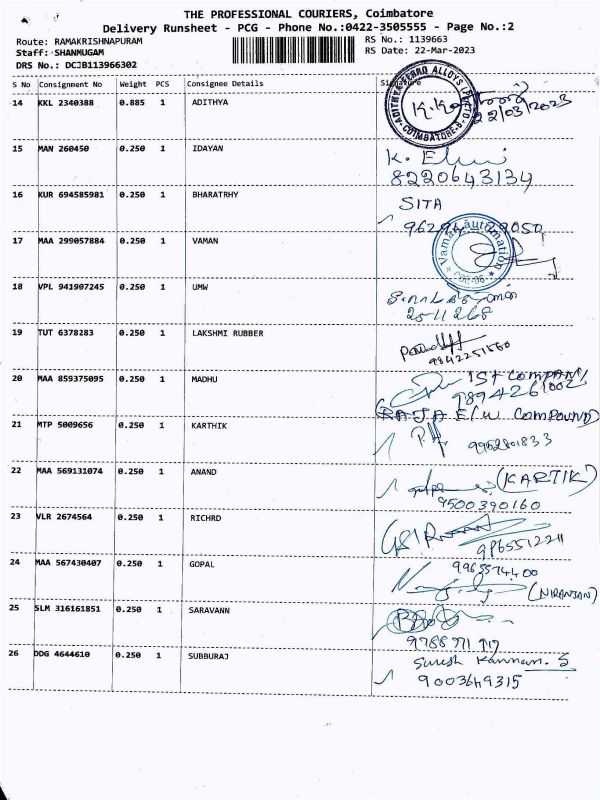 THE PROFESSIONAL COURIERS, Coimbatore
Delivery Runsheet - PCG - Phone No.:0422-3505555 - Page No.:2
Route: RAMAKRISHNAPURAM RS No.: 1139663
Staff: SHANMUGAM RS Date: 22-Mar-2023
DRS No.: DCJB113966302
S No Consignment No Weight PCS Consignee Details Signature
14 KKL 2340388 0.885 1 ADITHYA
ADITHYA FERRO ALLOYS (P) LTD
COIMBATORE-6
22/03/2023
15 MAN 260450 0.250 1 IDAYAN
8220643134
16 KUR 694585981 0.250 1 BHARATRHY SITA
17 MAA 299057884 0.250 1 VAMAN
Vaman automation
18 VPL 941907245 0.250 1 UMW
19 TUT 6378283 0.250 1 LAKSHMI RUBBER
9842251560
20 MAA 859375095 0.250 1 MADHU
IST COMPANY
RAJA E/W COMPOUND
21 MTP 5009656 0.250 1 KARTHIK
9952801833
22 MAA 569131074 0.250 1 ANAND (KARTIK)
9500390160
23 VLR 2674564 0.250 1 RICHRD
9965574400
24 MAA 567430407 0.250 1 GOPAL
(NIRANJAN)
25 SLM 316161851 0.250 1 SARAVANN
26 DDG 4644610 0.250 1 SUBBURAJ Suresh Kannan. S
9003649315